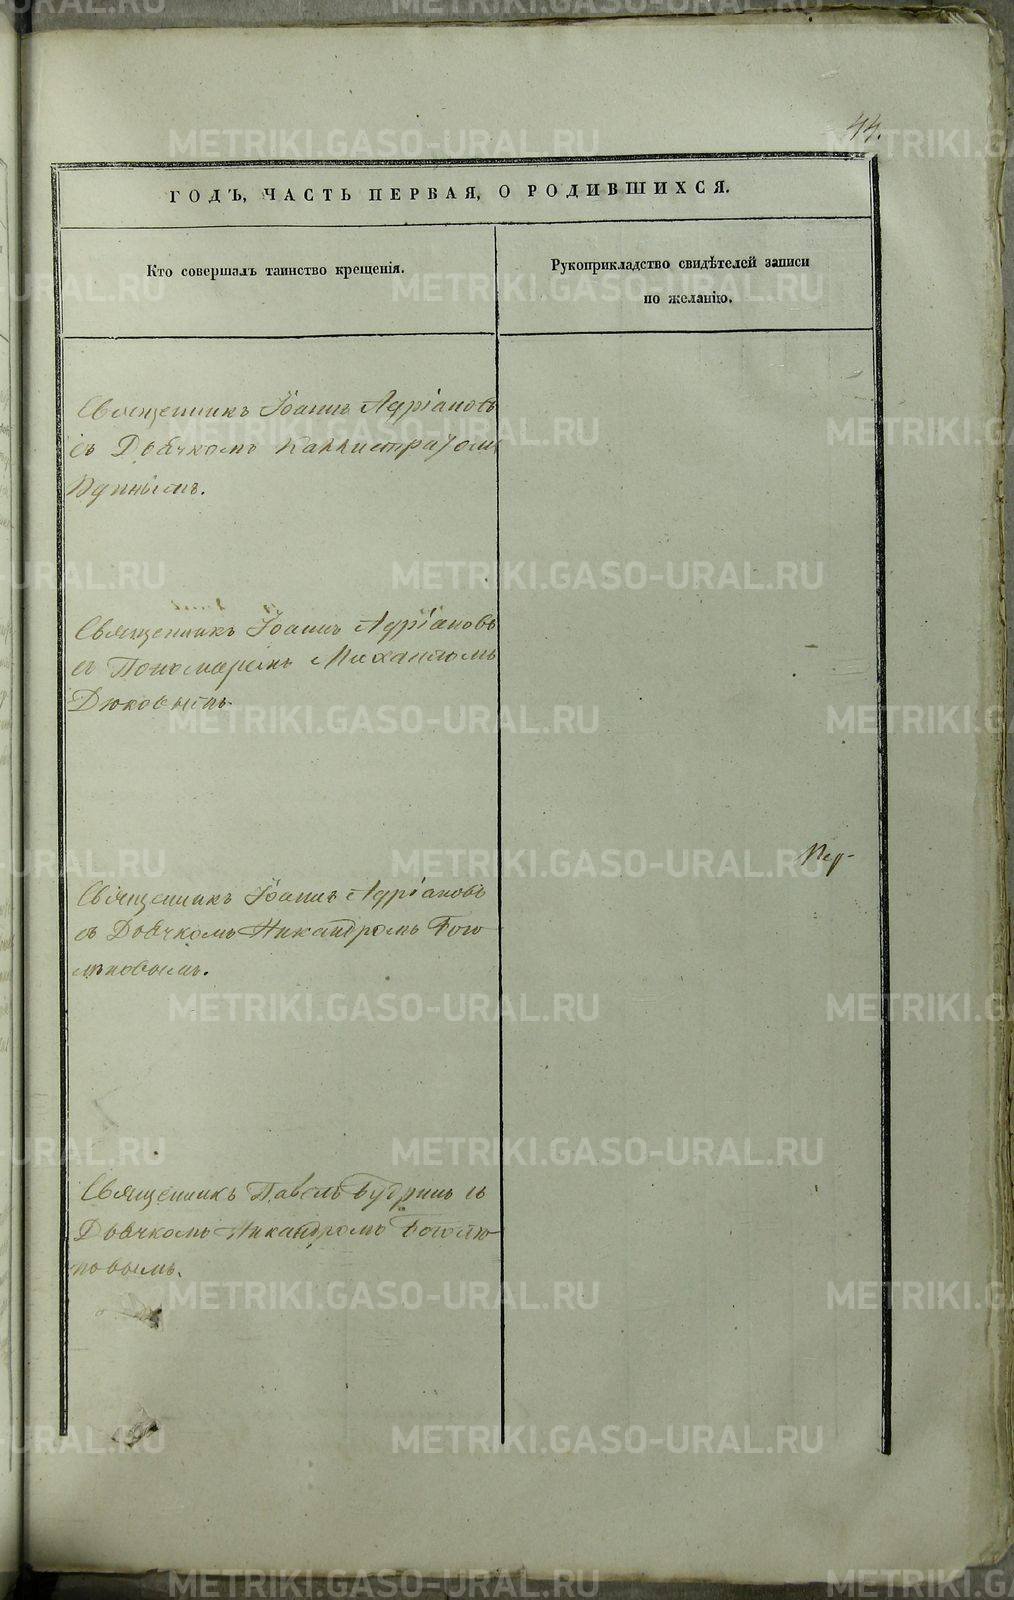 44.
ГОДЪ, ЧАСТЬ ПЕРВАЯ, О РОДИВШИХСЯ.
Кто совершалъ таинство крещенія.
Рукоприкладство свидѣтелей записи
по желанію.
Священникъ Іоаннъ Адріановъ
съ Дьячкомъ Каллистратомъ
Священникъ Іоаннъ Адріановъ
съ Пономаремъ Михаиломъ
Дюковымъ.
Священникъ Іоаннъ Адріановъ
съ Дьячкомъ Никандромъ Бого
Священникъ Павелъ Будринъ съ
Дьячкомъ Никандромъ
METRIKI.GASO-URAL.RU